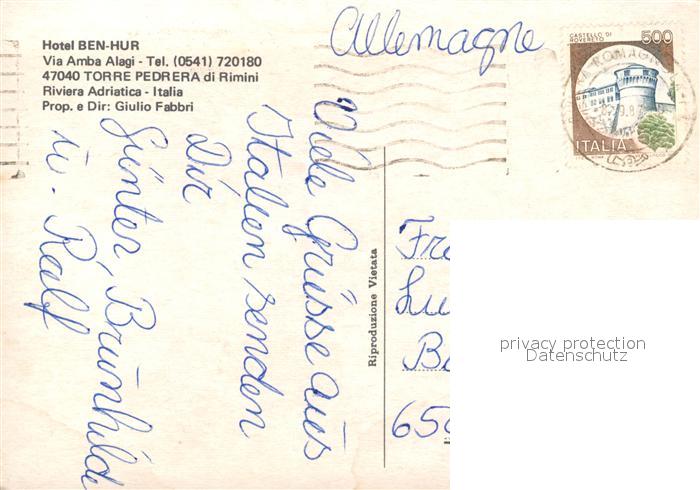 Hotel BEN-HUR
Via Amba Alagi - Tel. (0541) 720180
47040 TORRE PEDRERA di Rimini
Riviera Adriatica - Italia
Prop. e Dir: Giulio Fabbri
Allemagne
CASTELLO DI
ROVERETO
500
ITALIA
Viele Grüsse aus
Italien senden
Dir
Günter, Brunhilde
u. Ralf
Riproduzione Vietata
Fre
Lu
B
650
privacy protection
Datenschutz